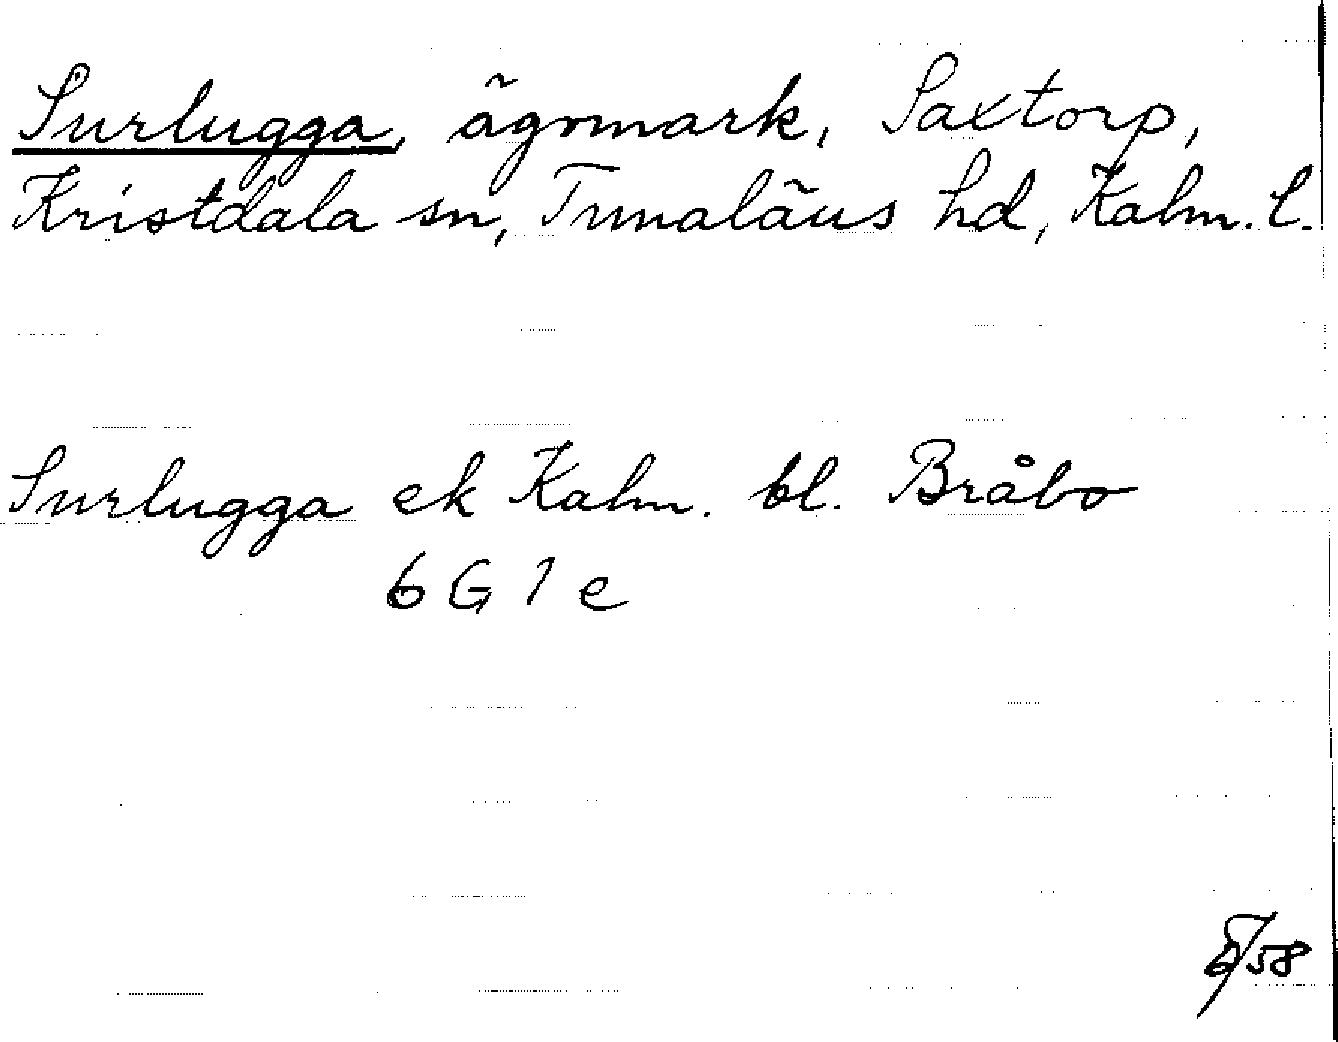 Surlugga, ägomark, Saxtorp,
Kristdala sn, Tunaläns hd, Kalm. l.
Surlugga ek Kalm. bl. Bråbo
6 G 1 e